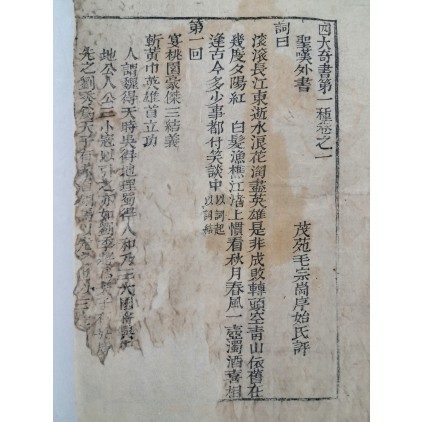 四大奇書第一種卷之一
聖嘆外書
茂苑毛宗崗序始氏評
詞曰
滾滾長江東逝水浪花淘盡英雄是非成敗轉頭空青山依舊在
幾度夕陽紅 白髮漁樵江渚上慣看秋月春風一壺濁酒喜相
逢古今多少事都付笑談中 以詞起 以詞結
第一回
宴桃園豪傑三結義
斬黃巾英雄首立功
人謂魏得天時吳得地理蜀得人和乃三大國將興
地公人公三小寇以引之亦如劉季
先之劉秀